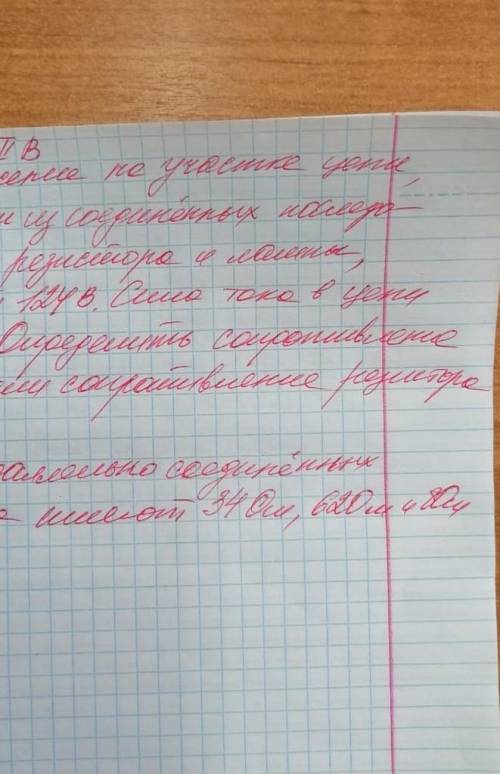 II В
на участке цепи,
из соединённых последо-
резистора и лампы,
124 В. Сила тока в цепи
Определить сопротивление
сопротивление резистора
соединённых
имеют 34 Ом, 62 Ом и 8 Ом